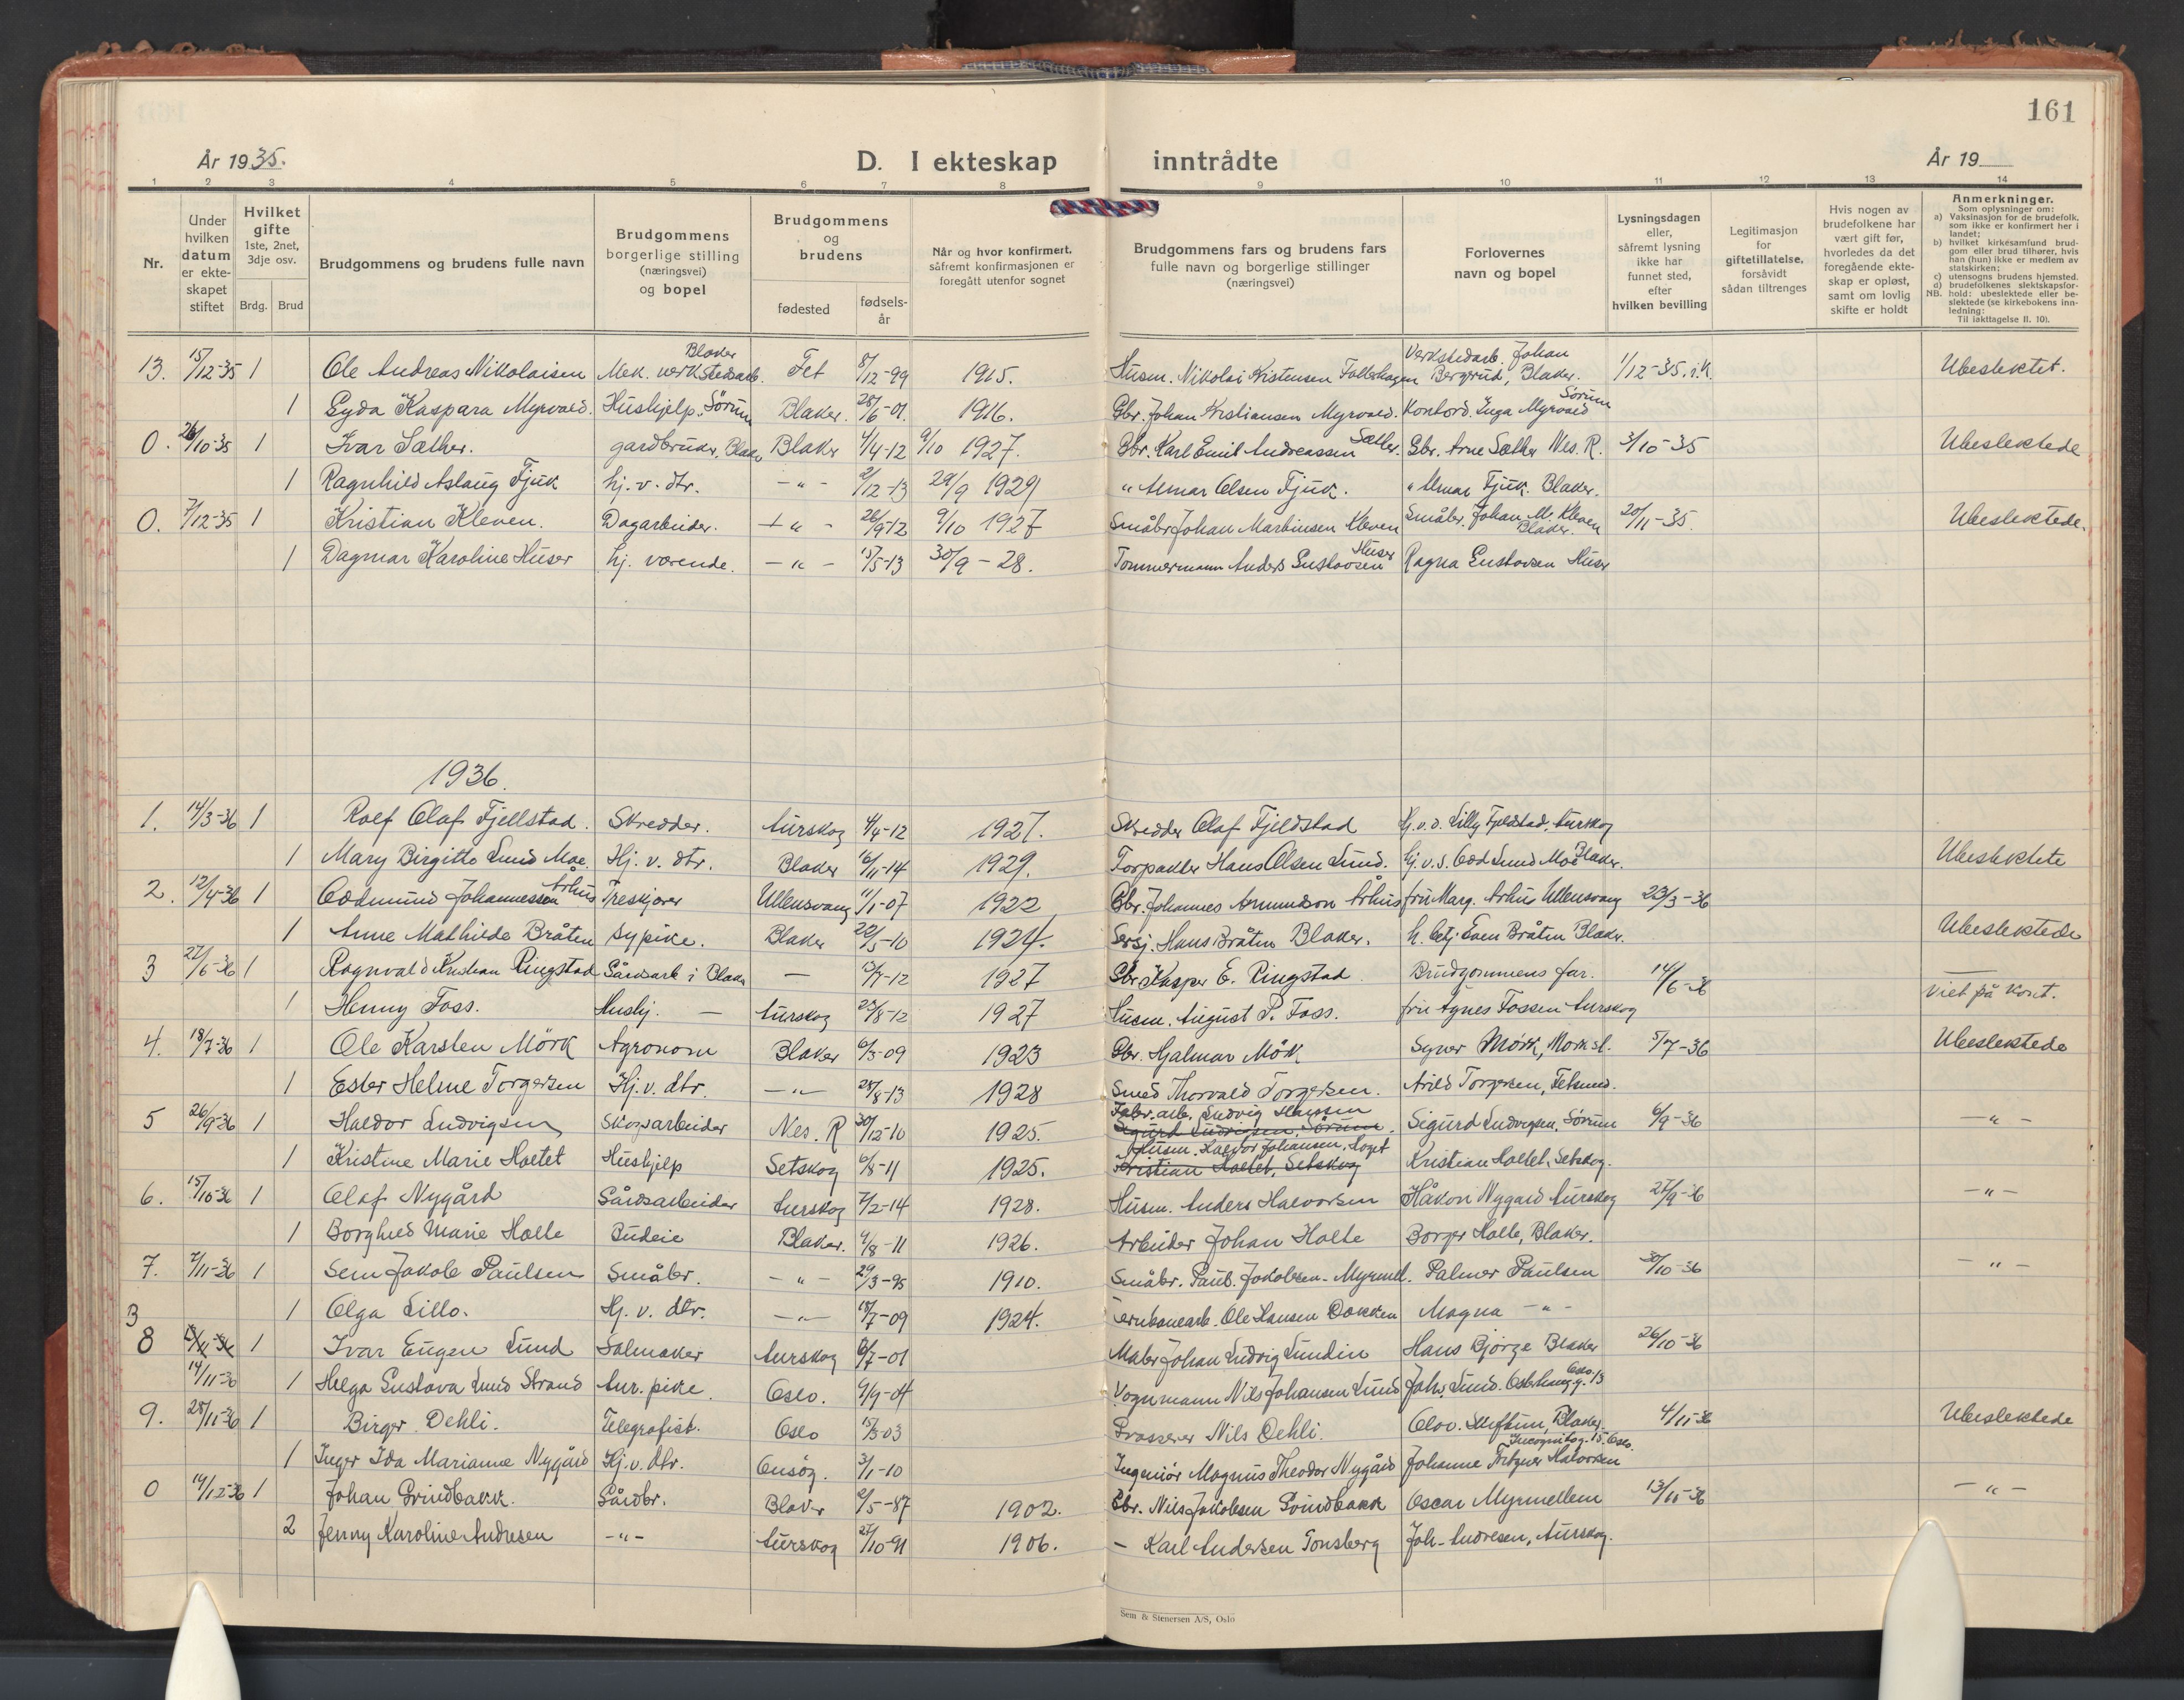 161
År 1935.
D. I ekteskap inntrådte
År 19
1 2 3 4 5 6 7 8 9 10 11 12 13 14
Nr.
Under hvilken datum er ekteskapet stiftet
Hvilket gifte 1ste, 2net, 3dje osv.
Brdg. Brud
Brudgommens og brudens fulle navn
Brudgommens borgerlige stilling (næringsvei) og bopel
Brudgommens og brudens
fødested
fødselsår
Når og hvor konfirmert, såfremt konfirmasjonen er foregått utenfor sognet
Brudgommens fars og brudens fars fulle navn og borgerlige stillinger (næringsvei)
Forlovernes navn og bopel
Lysningsdagen eller, såfremt lysning ikke har funnet sted, efter hvilken bevilling
Legitimasjon for giftetillatelse, forsåvidt sådan tiltrenges
Hvis nogen av brudefolkene har vært gift før, hvorledes da det foregående ekteskap er opløst, samt om lovlig skifte er holdt
Anmerkninger.
Som oplysninger om:
a) Vaksinasjon for de brudefolk, som ikke er konfirmert her i landet;
b) hvilket kirkesamfund brudgom eller brud tilhører, hvis han (hun) ikke er medlem av statskirken;
c) utensogns brudens hjemsted.
d) brudefolkenes slektskapsforhold: ubeslektede eller beslektede (se kirkebokens innledning:
NB.
Til iakttagelse II. 10).
13. 15/12-35 1 Ole Andreas Nikolaisen Mek. verkstedsarb. Blaker Fet 8/12-99 1915. Husm. Nikolai Kristensen Verkstedarb. Johan Bergrud, Blaker. 1/12-35. i.k. Ubeslektet.
1 Gyda Kaspara Myrvold. Hushjelp. Sørum Blaker. 28/6-01 1916. Gbr. Johan Kristiansen Myrvold. Kontord. Inga Myrvold Sørum
0. 26/10-35 1 Ivar Sæther. gardbruker, Blaker Blaker 4/4-12 9/10 1927. Gbr. Karl Emil Andreassen Sæther. Gbr. Arne Sæther Nes. R. 3/10-35 Ubeslektede
1 Ragnhild Aslaug Fjuk hj. v. dtr. -"- 2/12-13 29/9 1929 " Almar Olsen Fjuk. " Almar Fjuk. Blaker.
0. 7/12-35 1 Kristian Kleven. Dagarbeider. -"- 26/9-12 9/10 1927 Småbr. Johan Martinsen Kleven Småbr. Johan M. Kleven Blaker. 20/11-35. Ubeslektede.
1 Dagmar Karoline Huser hj. værende. -"- 15/5-13 30/9-28. Tømmermann Anders Gustavsen Huser Ragna Gustavsen Huser
1936.
1. 14/3-36 1 Rolf Olaf Fjellstad. Skredder. Aurskog 4/4-12 1927. Skredder Olaf Fjeldstad Hj.v.d. Lilly Fjeldstad, Aurskog
1 Mary Birgitte Lund Moe. Hj. v. dtr. Blaker 16/11-14 1929. Forpakter Hans Olsen Lund. hj.v.s. Odd Lund Moe Blaker. Ubeslektete
2. 12/4-36 1 Oddmund Johannessen Århus Treskjærer Ullensvang 11/1-07 1922 Gbr. Johannes Amundson Århus fru Marg. Århus Ullensvang 23/3-36
1 Anne Mathilde Bråten sypike. Blaker 22/5-10 1924. Sersj. Hans Bråten Blaker. h. betj. Even Bråten Blaker. Ubeslektede
3 27/6-36 1 Ragnvald Kristian Ringstad Gårdsarb i Blaker — 13/7-12 1927 Gbr. Kasper E. Ringstad Brudgommens far. 14/6-36
1 Henny Foss. Hushj. — Aurskog 23/8-12 1927 Husm. August P. Foss. fru Agnes Fossen Aurskog Viet på kont.
4. 18/7-36 1 Ole Karsten Mörk Agronom Blaker 6/3-09 1923 Gbr. Hjalmar Mök Syver Mørk, Mork st. 5/7-36 Ubeslektede
1 Ester Helene Torgersen Hj. v. dtr. -"- 28/8-13 1928 Smed Thorvald Torgersen. Arild Torgersen, Fetsund.
5 26/9-36 1 Haldor Ludvigsen Skogsarbeider Nes. R 30/12-10 1925. Fabr. arb. Ludvig Hanssen Sigurd Ludvigsen, Sørum. Sigurd Ludvigsen, Sørum 6/9-36 -"-
1 Kristine Marie Holtet Hushjelp Setskog 6/8-11 1925. Husm. Halvor Johansen, Kristian Holtet, Setskog Kristian Holtet, Setskog.
6. 15/10-36 1 Olaf Nygård Gårdsarbeider Aurskog 7/2-14 1928. Husm. Anders Halvorsen Håkon Nygård Aurskog 27/9-36 -"-
1 Borghild Marie Holte Budeie Blaker. 9/8-11 1926. Arbeider Johan Holte Borger Holte, Blaker.
7. 7/11-36 1 Sem Jakob Paulsen Småbr. -"- 29/3-95 1910. Småbr. Paul. Jakobsen-Myrmel. Palmer Paulsen 30/10-36 -"-
3 1 Olga Lillo. Hj. v. dtr. -"- 18/7-09 1924. Jernbanearb. Ole Hansen Dokken Magna -"-
8 14/11-36 1 Ivar Eugen Lund Salmaker Aurskog 6/7-01 Maler Johan Ludvig Lundin Hans Bjørge Blaker 26/10-36
1 Helga Gustava Lund Strand Aur. pike. Oslo. 9/9-04 Vognmann Nils Johansen Lund Johs. Lund. Oslo. 13
9. 28/11-36 1 Birger Dehli. Telegrafist. Oslo 15/3-03 Nils Dehli. Olav. Blaker. 4/11-36 Ubeslektede
1 Inger Ida Marianne Nygård Hj. v. dtr. Onsøy. 3/1-10 Ingeniør Magnus Theodor Nygård Johanne Fritzner Halvorsen Incognitog. 15. Oslo.
0 19/12-36 1 Johan Grindbakk. Gårdbr. Blaker 2/5-87 1902. Gbr. Nils Jakobsen Grindbakk Oscar Myrmellem 13/11-36 -"-
2 Jenny Karoline Andresen -"- Aurskog 27/10-91 1906. - Karl Andersen Tonsberg Joh. Andresen, Aurskog.
Sem & Stenersen A/S, Oslo